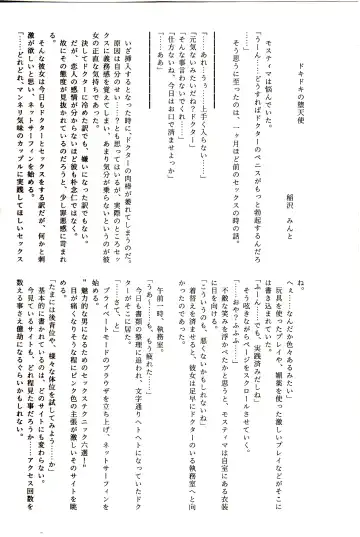 ドキドキの堕天使
稲沢 みんと
モスティマは悩んでいた。
「うーん……どうすればドクターのペニスがもっと勃起するんだろ」
そう思うに至ったのは、一ヶ月ほど前のセックスの時の話。
「……あれ……うぅ……上手く入らない……」
「元気ないみたいだね？ドクター」
「そんな事言わないでくれ……な」
「仕方ないね、今日はお口で済ませよっか」
いざ挿入するとなった時に、ドクターの肉棒が萎れてしまう。
原因は自分のせい……？とも思ってはいるが、実際のところセッ
クスに義務感を覚えてしまい、あまり気分が乗らないというのが彼
女の正直な気持ちであった。
決してドクターに冷めた訳でも、嫌いになった訳でもない。
だが、恋人の感情が分からないほど彼も朴念仁ではなく、
故にその態度が見抜かれているのだろうと、少し罪悪感に苛まれ
た。
そんな彼女は今日もドクターとセックスをする訳だが、何かと刺
激が欲しいと思い、ネットサーフィンを始める。
「……どれどれ、マンネリ気味のカップルに実践してほしいセックス
ね。
へえ……なんだか色々あるみたい」
玩具を使ったプレイや、媚薬を使った激しいプレイなどがそこに
は書き込まれていた。
「ふーん……でも、実践済みだしね」
そう呟きながらページをスクロールさせていく。
「……おやっ？ふふふ……」
不敵な笑みを浮かべたかと思うと、モスティマは自室にある衣装
に目を向ける。
「こういうのも、悪くないかもしれないね」
着替えを済ませると、彼女は足早にドクターのいる執務室へと向
かったのであった。
午前一時、執務室。
「うあー……もう、もう疲れた……」
今日も書類の整理に追われ、文字通りヘトヘトになっていたドク
ターがそこに居た。
「……さて、と」
プライベートモードのブラウザを立ち上げ、ネットサーフィンを
始める。
”魅力的な男になるためのセックステクニック六選！”
目が痛くなりそうな程にピンク色の主張が激しいそのサイトを眺
める。
「たまには後背位や、様々な体位を試してみよう……か」
基本的に書かれているのは、どのサイトにも変わらない。
今見ているサイトも、どれ程見た事だろうか……アクセス回数を
数える事さえ億劫になるぐらいかもしれない。